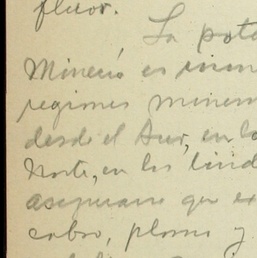 flúor.
La pote
Minería es
regiones minera
desde el Sur, en la
Norte, en los lind
asegurarse que ex
cobre, plomo y